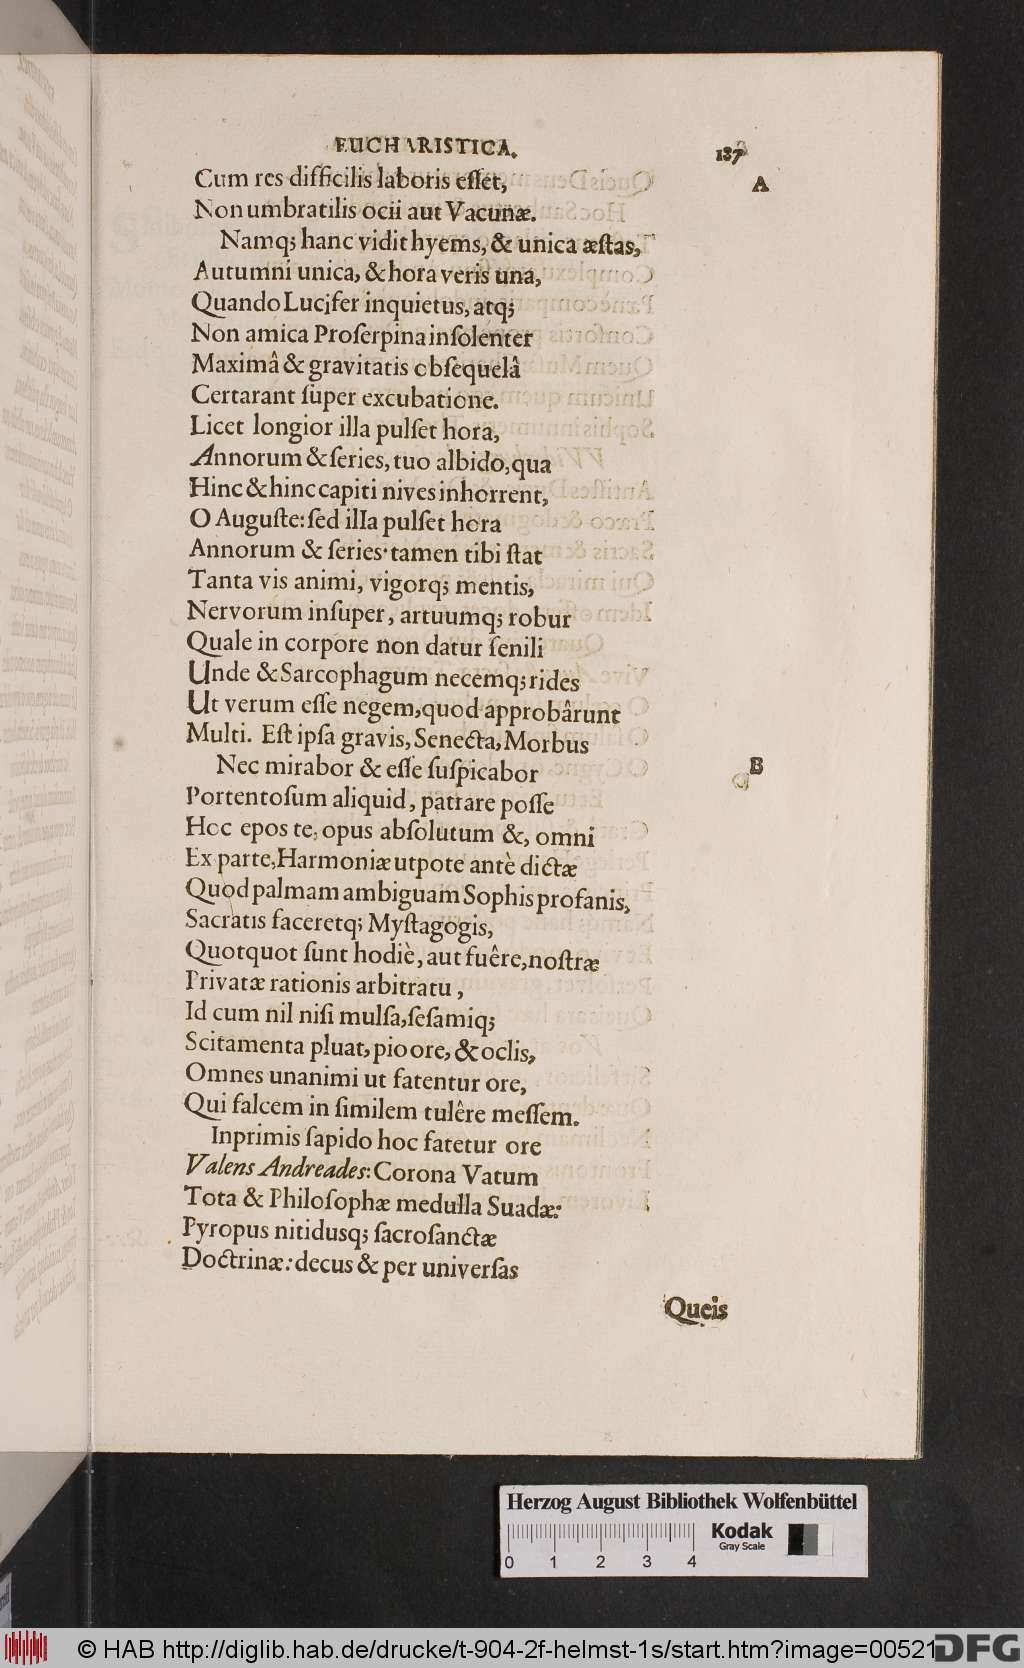 EUCHARISTICA.
187
A
Cum res difficilis laboris eſſet,
Non umbratilis ocii aut Vacunæ.
Namq; hanc vidit hyems, & unica æſtas,
Autumni unica, & hora veris una,
Quando Lucifer inquietus, atq;
Non amica Proſerpina inſolenter
Maximâ & gravitatis obſequelâ
Certarant ſuper excubatione.
Licet longior illa pulſet hora,
Annorum & ſeries, tuo albido, qua
Hinc & hinc capiti nives inhorrent,
O Auguſte: ſed illa pulſet hora
Annorum & ſeries· tamen tibi ſtat
Tanta vis animi, vigorq; mentis,
Nervorum inſuper, artuumq; robur
Quale in corpore non datur ſenili
Unde & Sarcophagum necemq; rides
Ut verum eſſe negem, quod approbârunt
Multi. Eſt ipſa gravis, Senecta, Morbus
B
Nec mirabor & eſſe ſuſpicabor
Portentoſum aliquid, patrare poſſe
Hoc epos te, opus abſolutum &, omni
Ex parte, Harmoniæ utpote antè dictæ
Quod palmam ambiguam Sophis profanis,
Sacratis faceretq; Myſtagogis,
Quotquot ſunt hodiè, aut fuêre, noſtræ
Privatæ rationis arbitratu,
Id cum nil niſi mulſa, ſeſamiq;
Scitamenta pluat, pio ore, & oclis,
Omnes unanimi ut fatentur ore,
Qui falcem in ſimilem tulêre meſſem.
Inprimis ſapido hoc fatetur ore
Valens Andreades: Corona Vatum
Tota & Philoſophæ medulla Suadæ:
Pyropus nitidusq; ſacroſanctæ
Doctrinæ: decus & per univerſas
Queis
Herzog August Bibliothek Wolfenbüttel
Kodak
Gray Scale
0 1 2 3 4
© HAB http://diglib.hab.de/drucke/t-904-2f-helmst-1s/start.htm?image=00521
DFG